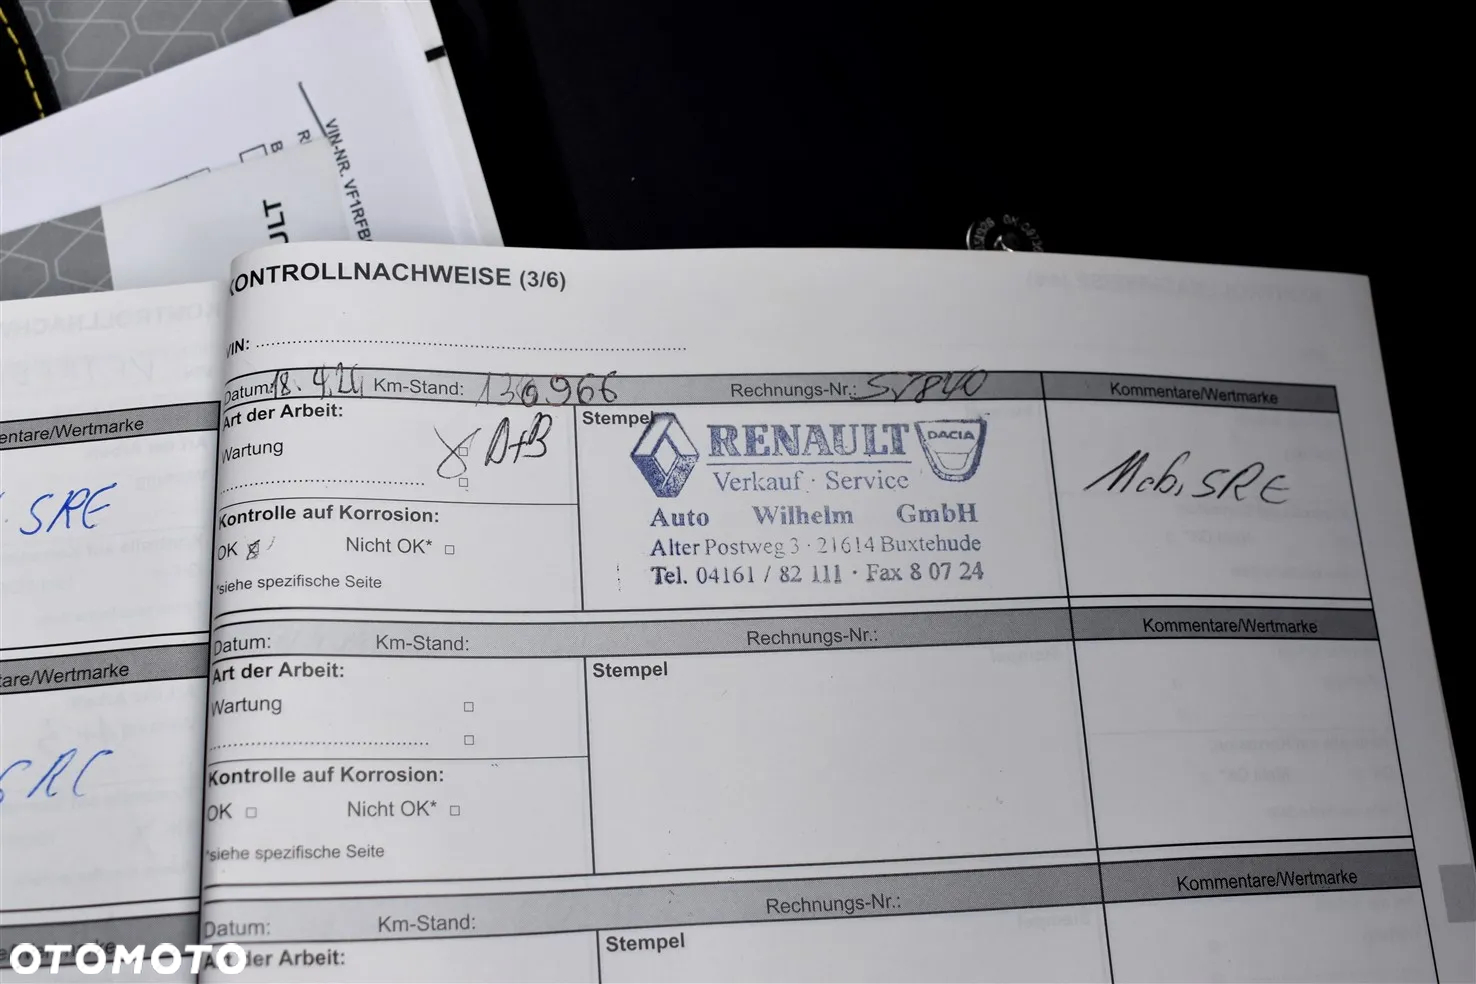 VIN-NR. VF1RFB
ULT
KONTROLLNACHWEISE (3/6)
VIN:
Datum: Km-Stand: 130966 Rechnungs-Nr.: Kommentare/Wertmarke
Art der Arbeit:
Wartung A+B
Kontrolle auf Korrosion:
OK Nicht OK*
*siehe spezifische Seite
Stempel
RENAULT DACIA
Verkauf · Service
Auto Wilhelm GmbH
Alter Postweg 3 · 21614 Buxtehude
Tel. 04161 / 82 111 · Fax 8 07 24
Mobi SRE
Datum: Km-Stand: Rechnungs-Nr.: Kommentare/Wertmarke
Art der Arbeit:
Wartung
Kontrolle auf Korrosion:
OK Nicht OK*
*siehe spezifische Seite
Stempel
Datum: Km-Stand: Rechnungs-Nr.: Kommentare/Wertmarke
Art der Arbeit:
Stempel
entare/Wertmarke
SRE
tare/Wertmarke
SRC
OTOMOTO